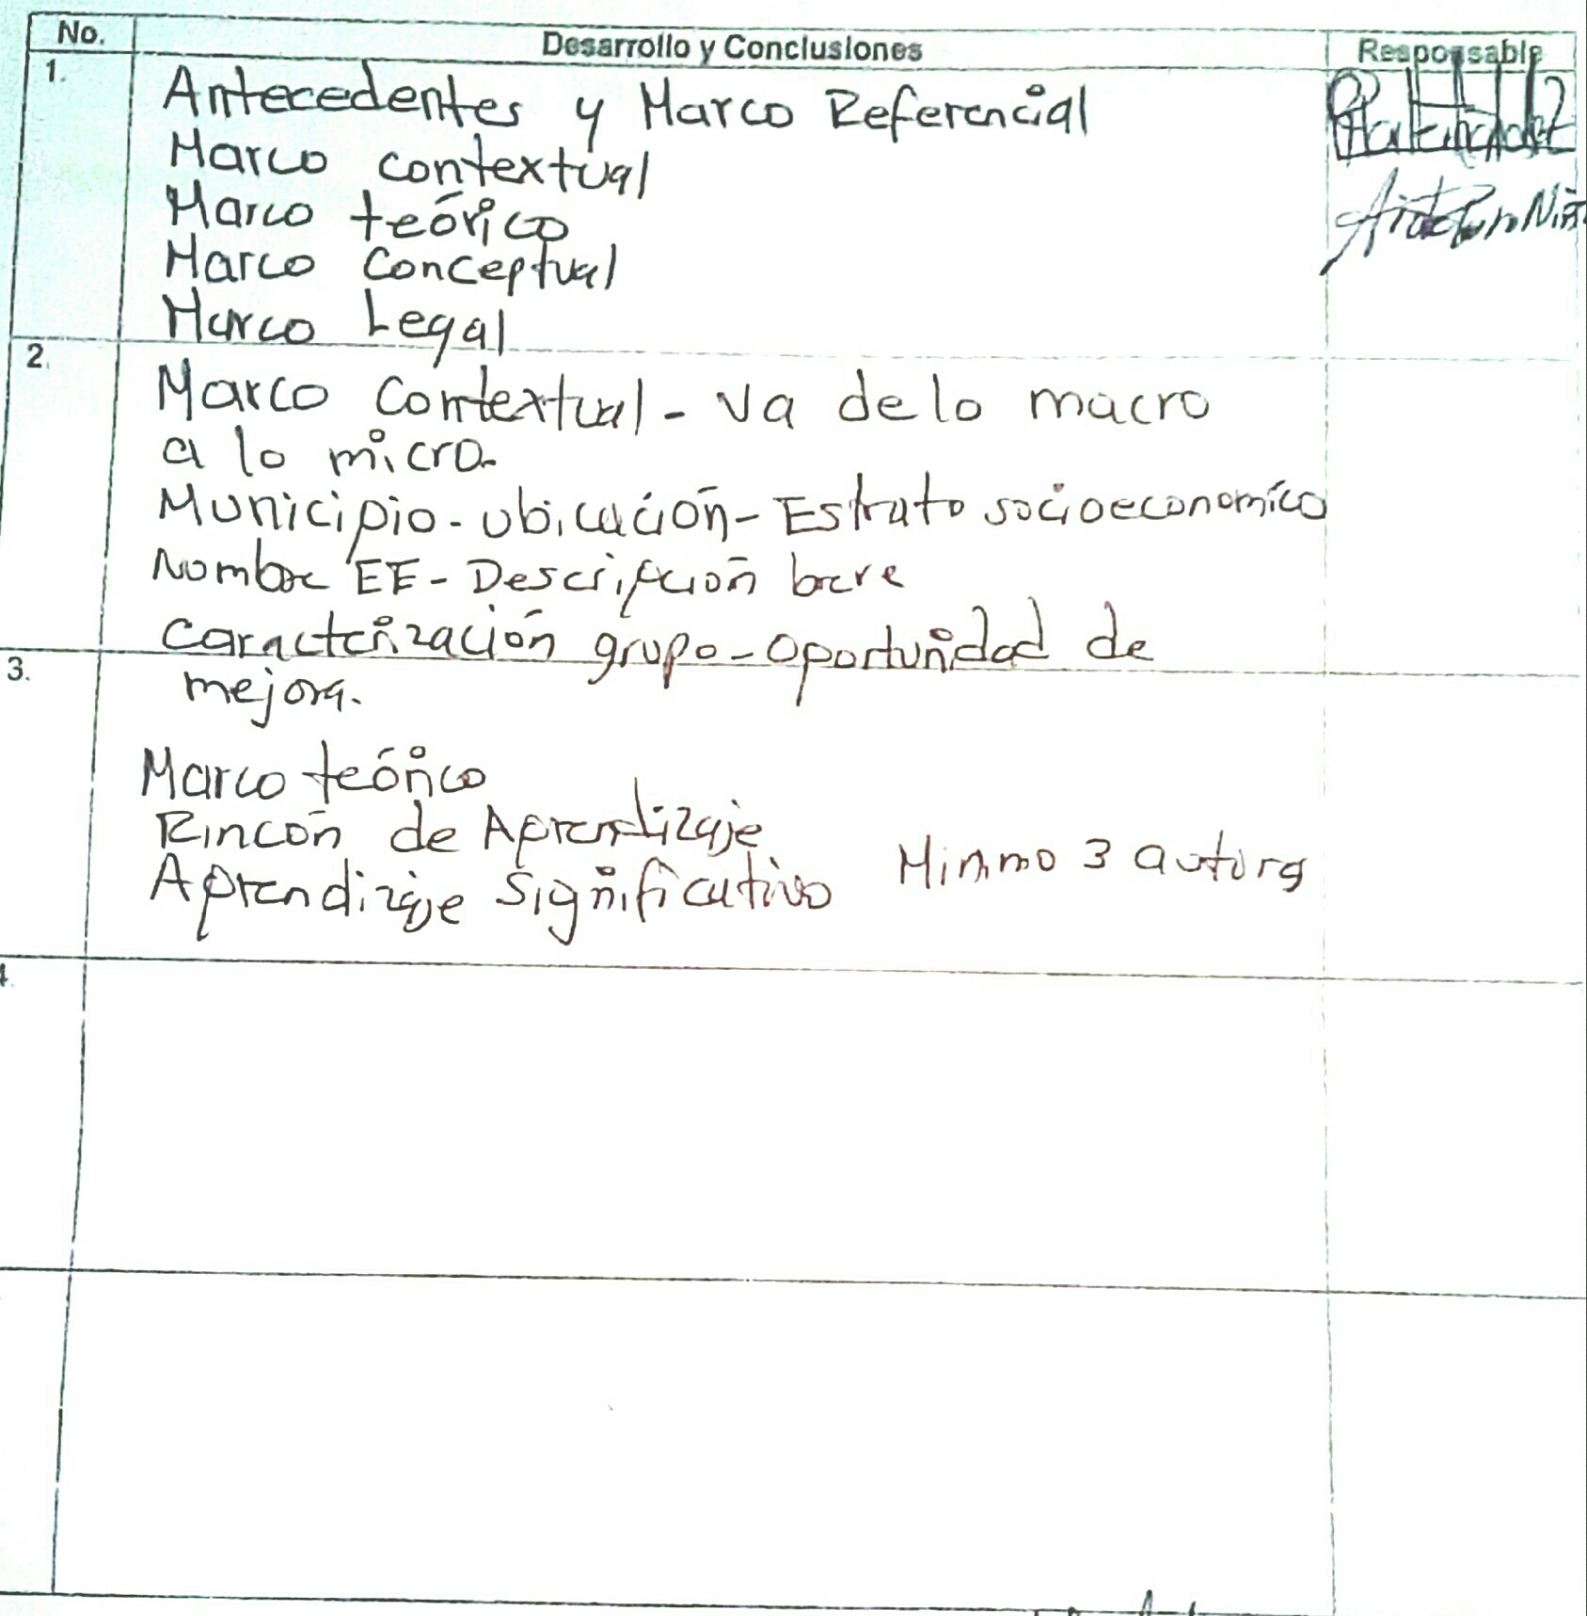 No. Desarrollo y Conclusiones Responsable
1.
Antecedentes y Marco Referencial
Marco contextual
Marco teórico
Marco Conceptual
Marco Legal
2.
Marco Contextual - Va de lo macro
a lo micro.
Municipio - ubicación - Estrato socioeconomíco
Nombre EE - Descripción breve
Caracterización grupo - Oportunidad de
3.
mejora.
Marco teórico
Rincón de Aprendizaje
Aprendizaje Significativo Minimo 3 autores